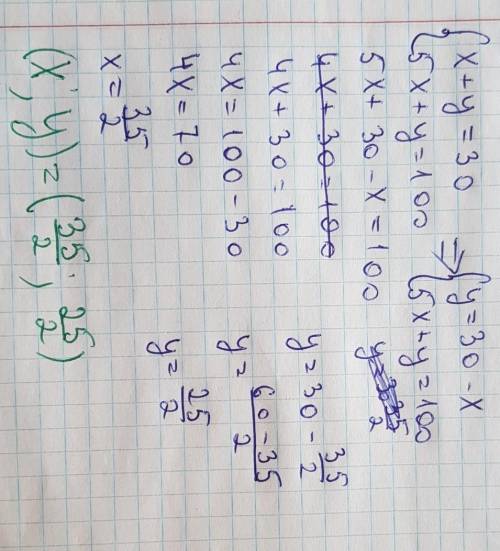 { x + y = 30
5x + y = 100 => { y = 30 - x
5x + y = 100
5x + 30 - x = 100
4x + 30 = 100
4x + 30 = 100
4x = 100 - 30
4x = 70
x = 35/2
y = 30 - 35/2
y = (60 - 35)/2
y = 25/2
(x; y) = (35/2; 25/2)